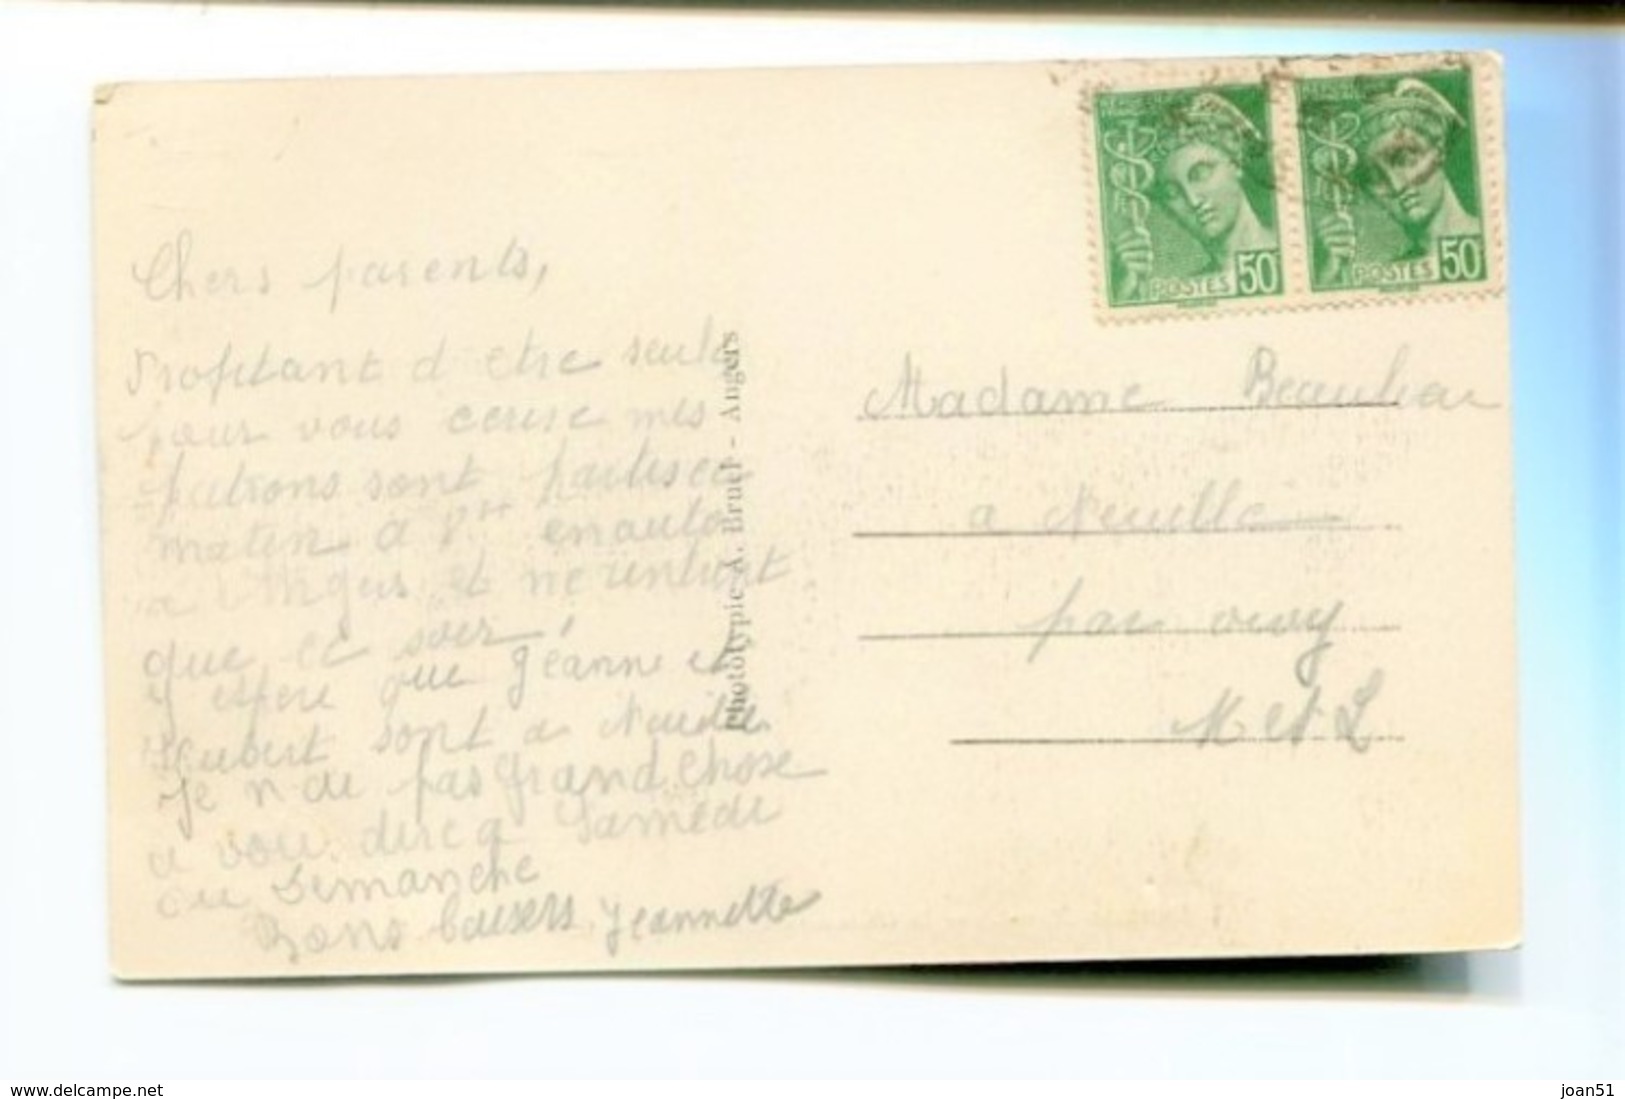 Chers parents,
Profitant d etre seule
pour vous ecrire mes
patrons sont partis ce
matin a 8 H en auto
a Angers et ne rentrent
que ce soir,
J espere que Jeanne et
sont a Neuillé
Je n ai pas grand chose
a vou dire a Samedi
ou Dimanche
Bons baisers. Jeannette
Phototypie A. Bruel - Angers
POSTES 50
POSTES 50
Madame Beaulieu
a Neuillé
par vivy
M et L
www.delcampe.net
joan51